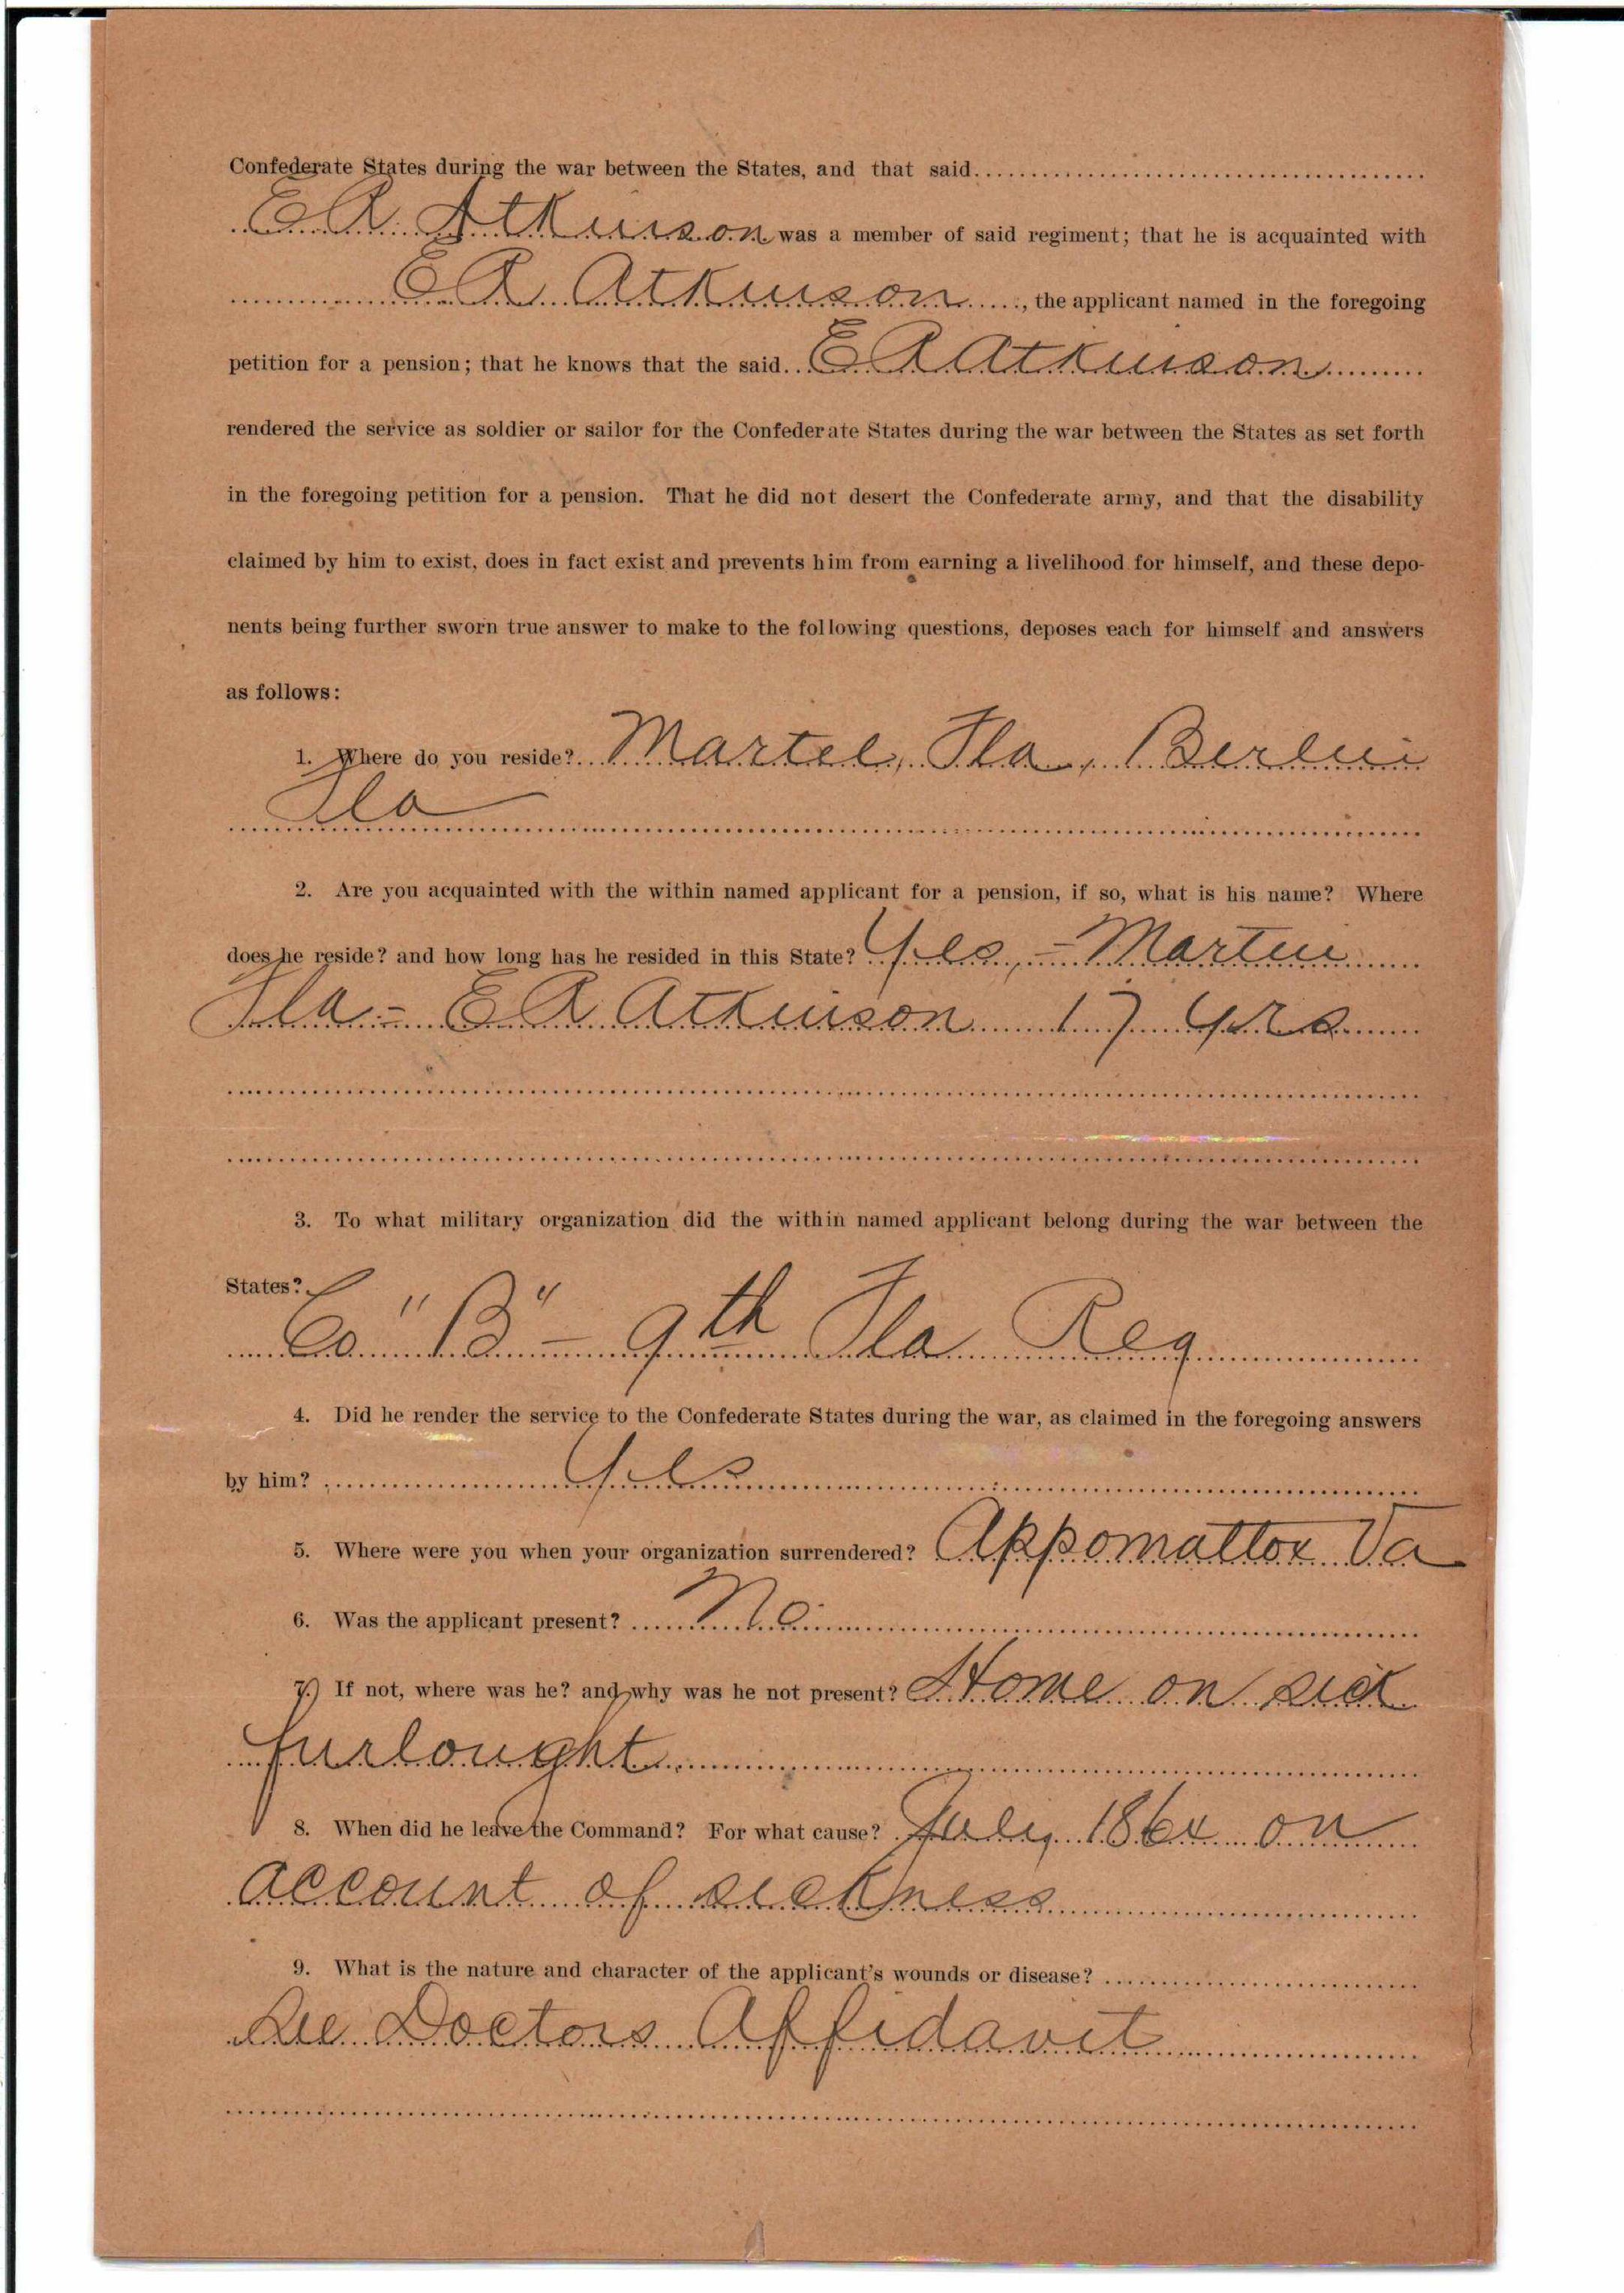 Confederate States during the war between the States, and that said
E R Atkinson was a member of said regiment; that he is acquainted with
E R Atkinson, the applicant named in the foregoing
petition for a pension; that he knows that the said E R Atkinson
rendered the service as soldier or sailor for the Confederate States during the war between the States as set forth
in the foregoing petition for a pension. That he did not desert the Confederate army, and that the disability
claimed by him to exist, does in fact exist and prevents him from earning a livelihood for himself, and these depo-
nents being further sworn true answer to make to the following questions, deposes each for himself and answers
as follows:
1. Where do you reside? Martel, Fla, Berlin
Fla
2. Are you acquainted with the within named applicant for a pension, if so, what is his name? Where
does he reside? and how long has he resided in this State? Yes, - Martin
Fla - E R Atkinson 17 Yrs
3. To what military organization did the within named applicant belong during the war between the
States?
Co "B" - 9th Fla Reg
4. Did he render the service to the Confederate States during the war, as claimed in the foregoing answers
by him? Yes
5. Where were you when your organization surrendered? Appomattox Va
6. Was the applicant present? No
7. If not, where was he? and why was he not present? Home on sick
furlought
8. When did he leave the Command? For what cause? July 1864 on
account of sickness
9. What is the nature and character of the applicant's wounds or disease?
See Doctors Affidavit